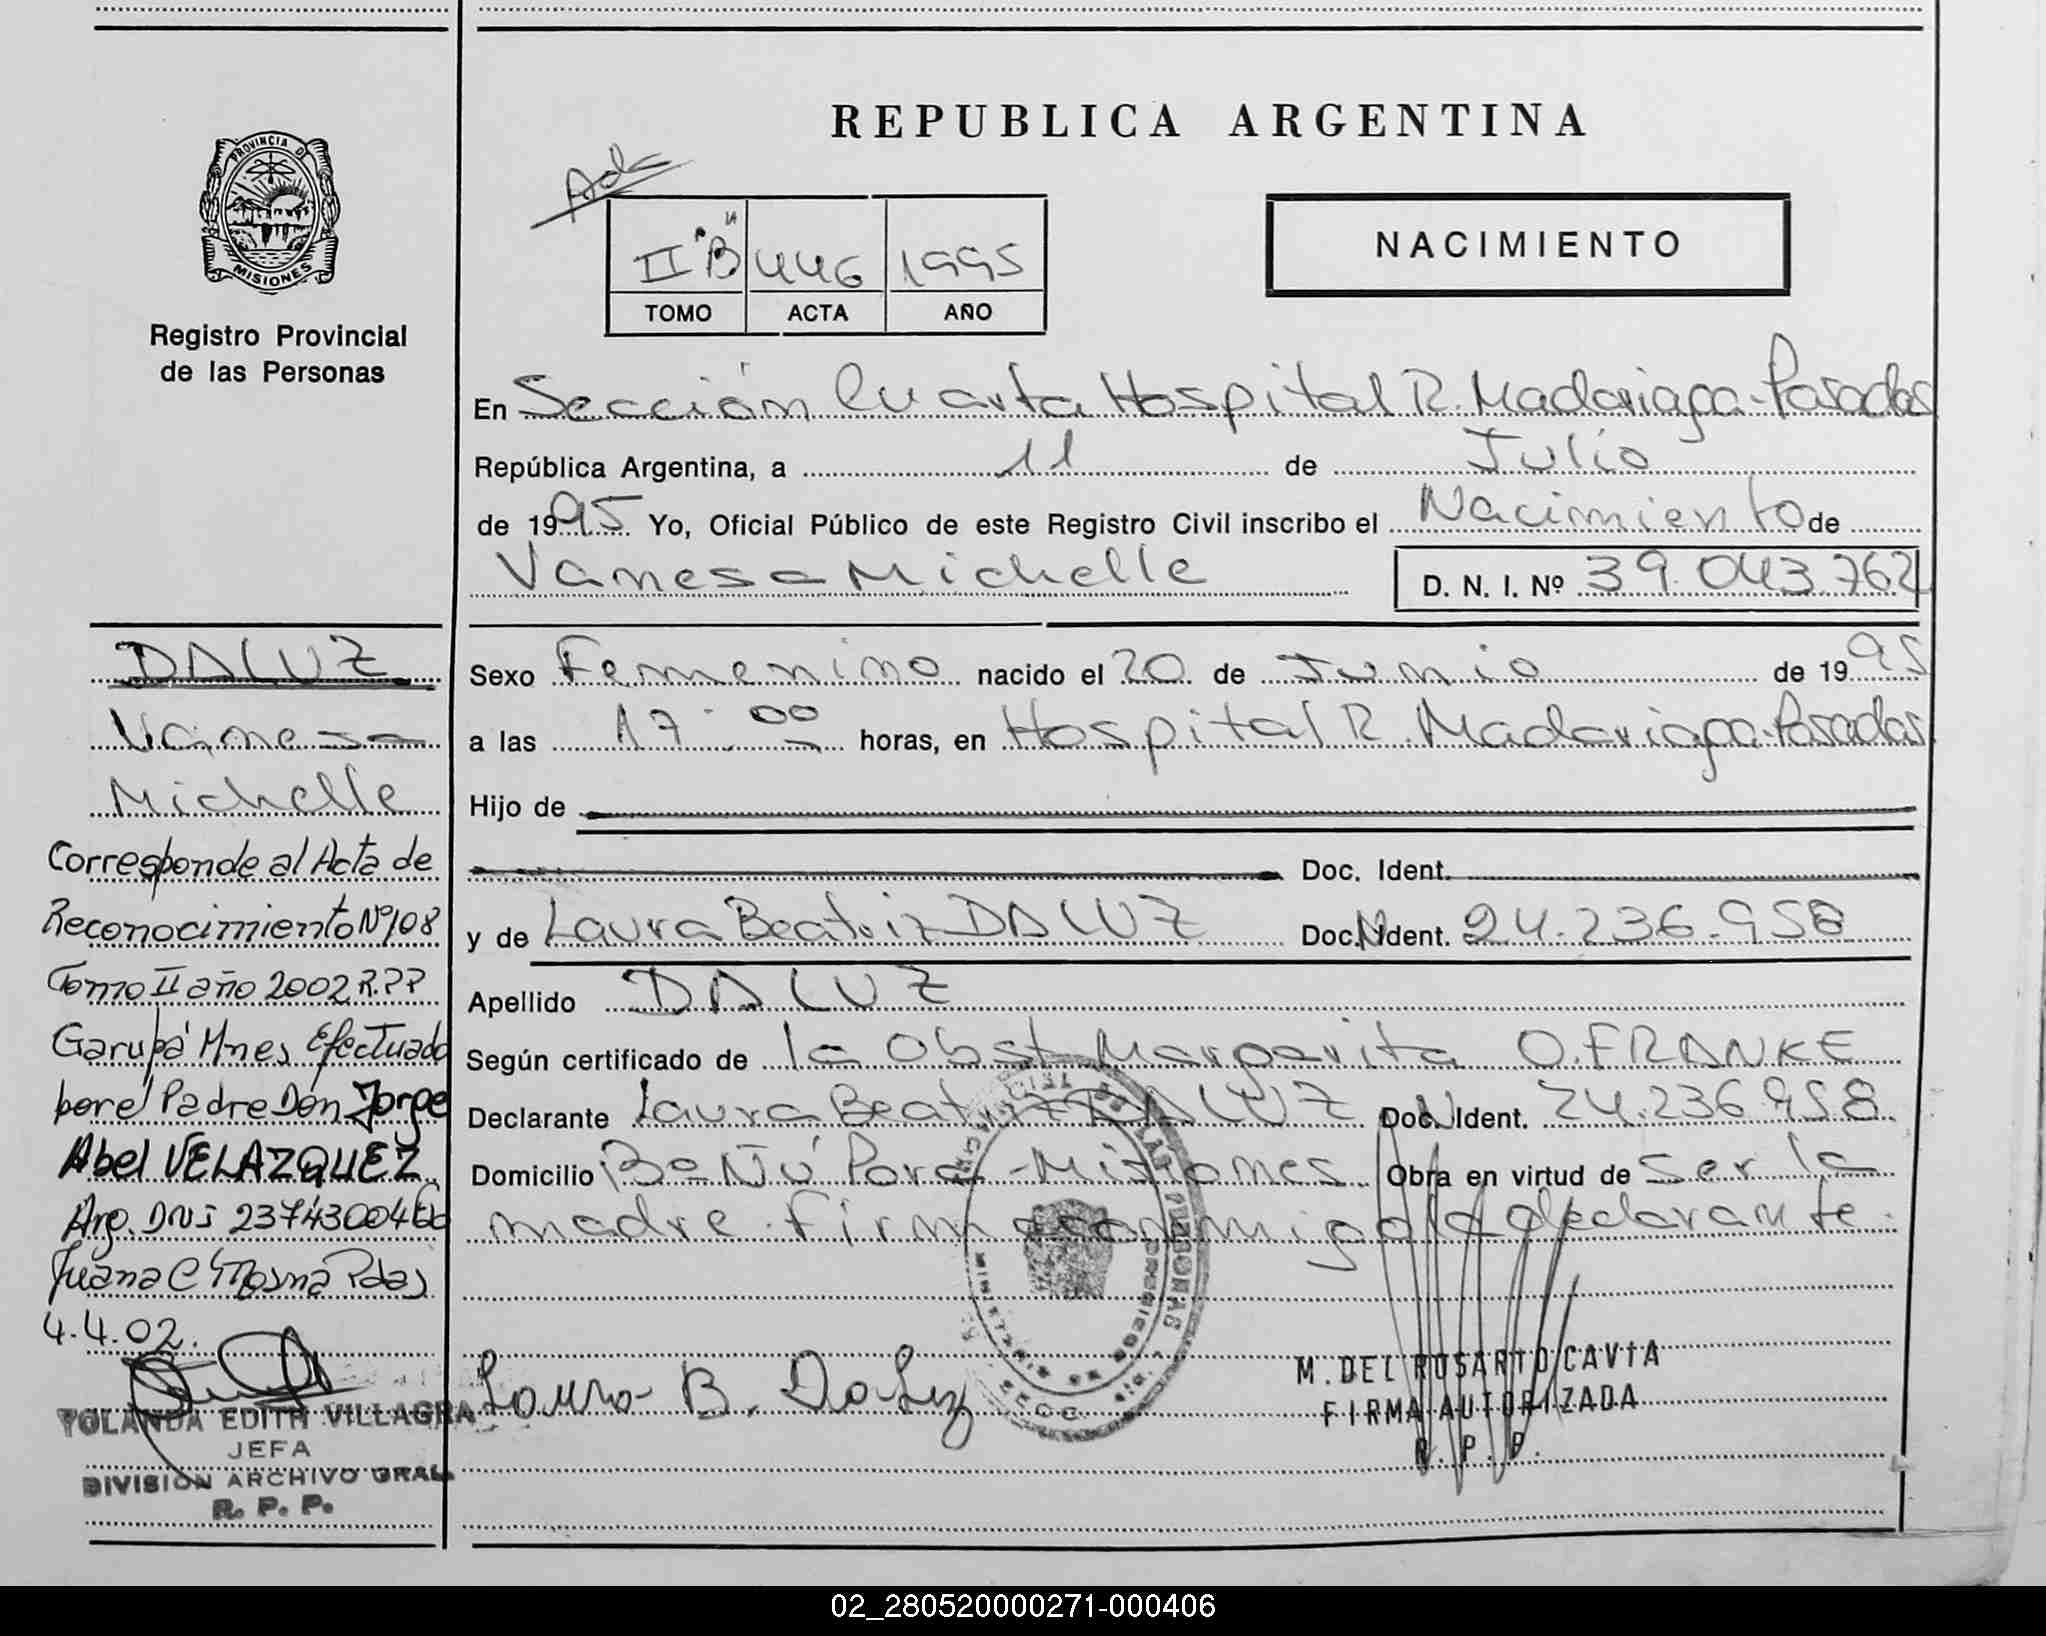 PROVINCIA DE
MISIONES
Registro Provincial
de las Personas
REPUBLICA ARGENTINA
II "B" 446 1995
TOMO ACTA AÑO
NACIMIENTO
En Sección Cuarta Hospital R. Madariaga-Posadas
República Argentina, a 11 de Julio
de 1995 Yo, Oficial Público de este Registro Civil inscribo el Nacimiento de
Vanesa Michelle D. N. I. Nº 39.043.762
Sexo Femenino nacido el 20 de Junio de 1995
a las 17:00 horas, en Hospital R. Madariaga-Posadas
Hijo de
Doc. Ident.
y de Laura Beatriz DA LUZ Doc. Ident. 24.236.958
Apellido DA LUZ
Según certificado de la Obst Margarita O. FRANKE
Declarante Laura Beatriz DA LUZ Doc. Ident. 24.236.958
Domicilio Bº Ñú Porá-Misiones Obra en virtud de ser la
madre. Firma conmigo la declarante.
Laura B. Da Luz
M. DEL ROSARIO CAVIA
FIRMA AUTORIZADA
R. P. P.
DA LUZ
Vanesa
Michelle
Corresponde al Acta de
Reconocimiento Nº 108
Tomo II año 2002 R.P.P
Garupá Mnes Efectuado
por el Padre Don Jorge
Abel VELAZQUEZ
Arg. DNI
Juana C
4.4.02.
YOLANDA EDITH VILLAGRA
JEFA
DIVISION ARCHIVO GRAL.
R. P. P.
02_280520000271-000406